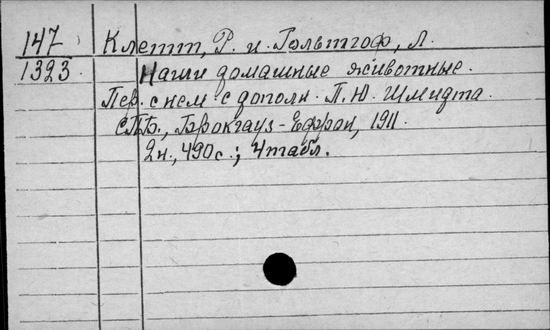 147 Клетт, Р. и Гольтгоф, Л.
1323. Наши домашные животные.
Пер. с нем. с дополн. П.Ю. Шмидта.
СПБ., Брокгауз-Ефрон, 1911.
2н., 490с.; 4табл.